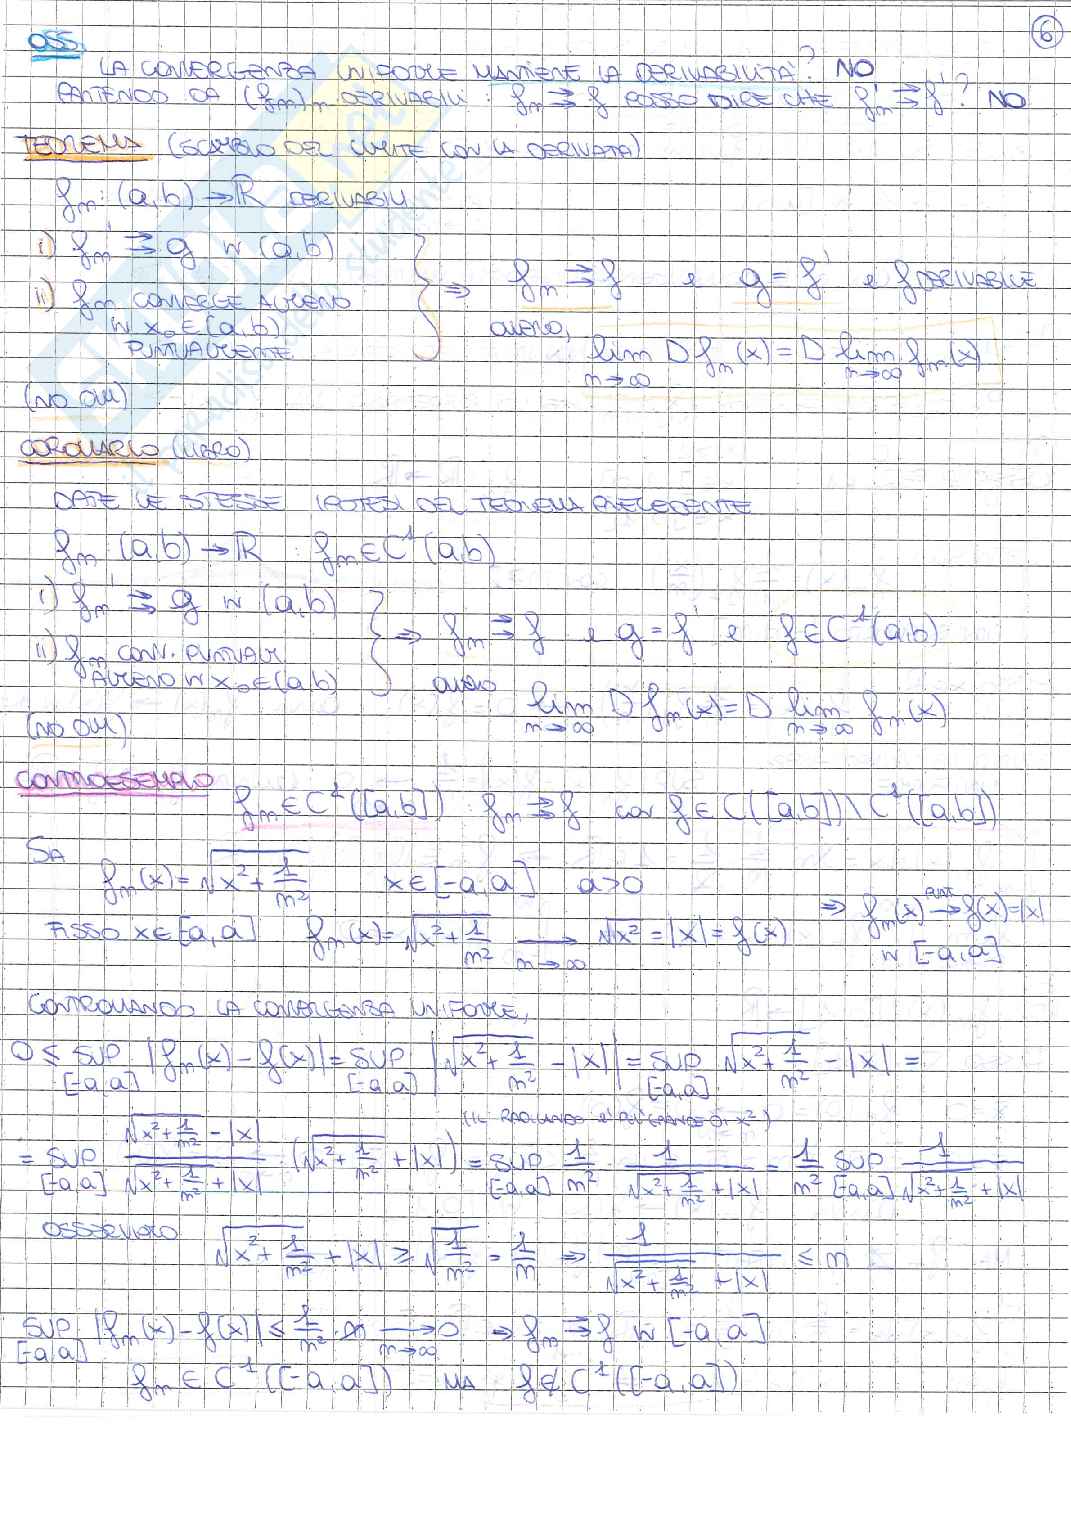 6
OSS.
LA CONVERGENZA UNIFORME MANTIENE LA DERIVABILITÀ? NO
PARTENDO DA (fn)n DERIVABILI : fn ⇉ f POSSO DIRE CHE fn' ⇉ f' ? NO
TEOREMA (SCAMBIO DEL LIMITE CON LA DERIVATA)
fn : (a,b) → ℝ DERIVABILI
i) fn' ⇉ g IN (a,b)
ii) fn CONVERGE ALMENO
IN x₀ ∈ (a,b)
PUNTUALMENTE
⇒ fn ⇉ f e g = f' e f DERIVABILE
OVVERO, lim n→∞ D fn(x) = D lim n→∞ fn(x)
(NO DIM)
COROLLARIO (LIBRO)
DATE LE STESSE IPOTESI DEL TEOREMA PRECEDENTE
fn : (a,b) → ℝ : fn ∈ C¹(a,b)
i) fn' ⇉ g IN (a,b)
ii) fn CONV. PUNTUALM.
ALMENO IN x₀ ∈ (a,b)
⇒ fn ⇉ f e g = f' e f ∈ C¹(a,b)
OVVERO lim n→∞ D fn(x) = D lim n→∞ fn(x)
(NO DIM)
CONTROESEMPIO
fn ∈ C¹([a,b]) : fn ⇉ f CON f ∈ C([a,b]) \ C¹([a,b])
SIA
fn(x) = √(x² + 1/n²) x ∈ [-a,a] a>0
FISSO x ∈ [-a,a] fn(x) = √(x² + 1/n²) → n→∞ √x² = |x| = f(x) ⇒ fn(x) →PUNT f(x) = |x|
IN [-a,a]
CONTROLLANDO LA CONVERGENZA UNIFORME,
0 ≤ SUP [-a,a] |fn(x) - f(x)| = SUP [-a,a] |√(x² + 1/n²) - |x|| = SUP [-a,a] √(x² + 1/n²) - |x| =
(IL RADICANDO È PIÙ GRANDE DI x²)
= SUP [-a,a] (√(x² + 1/n²) - |x|)/(√(x² + 1/n²) + |x|) · (√(x² + 1/n²) + |x|) = SUP [-a,a] 1/n² · 1/(√(x² + 1/n²) + |x|) = 1/n² SUP [-a,a] 1/(√(x² + 1/n²) + |x|)
OSSERVIAMO √(x² + 1/n²) + |x| ≥ √(1/n²) = 1/n ⇒ 1/(√(x² + 1/n²) + |x|) ≤ n
SUP [-a,a] |fn(x) - f(x)| ≤ 1/n² · n → n→∞ 0 ⇒ fn ⇉ f IN [-a,a]
fn ∈ C¹([-a,a]) MA f ∉ C¹([-a,a])